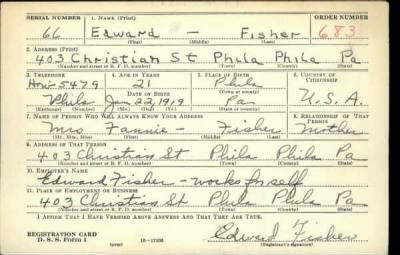 SERIAL NUMBER 1. NAME (Print) ORDER NUMBER
66 Edward — Fisher 683
(First) (Middle) (Last)
2. ADDRESS (Print)
403 Christian St Phila Phila Pa
(Number and street or R. F. D. number) (Town) (County) (State)
3. TELEPHONE 4. AGE IN YEARS 5. PLACE OF BIRTH 6. COUNTRY OF CITIZENSHIP
5479 21 Phila
DATE OF BIRTH (Town or county)
Phila Jan 22 1919 Pa U.S.A.
(Exchange) (Number) (Mo.) (Day) (Yr.) (State or country)
7. NAME OF PERSON WHO WILL ALWAYS KNOW YOUR ADDRESS 8. RELATIONSHIP OF THAT PERSON
Mrs Fannie — Fisher Mother
(Mr., Mrs., Miss) (First) (Middle) (Last)
9. ADDRESS OF THAT PERSON
403 Christian St Phila Phila Pa
(Number and street or R. F. D. number) (Town) (County) (State)
10. EMPLOYER'S NAME
Edward Fisher — works for self
11. PLACE OF EMPLOYMENT OR BUSINESS
403 Christian St Phila Phila Pa
(Number and street or R. F. D. number) (Town) (County) (State)
I AFFIRM THAT I HAVE VERIFIED ABOVE ANSWERS AND THAT THEY ARE TRUE.
REGISTRATION CARD
D. S. S. Form 1 (over) 16—17105 Edward Fisher
(Registrant's signature)